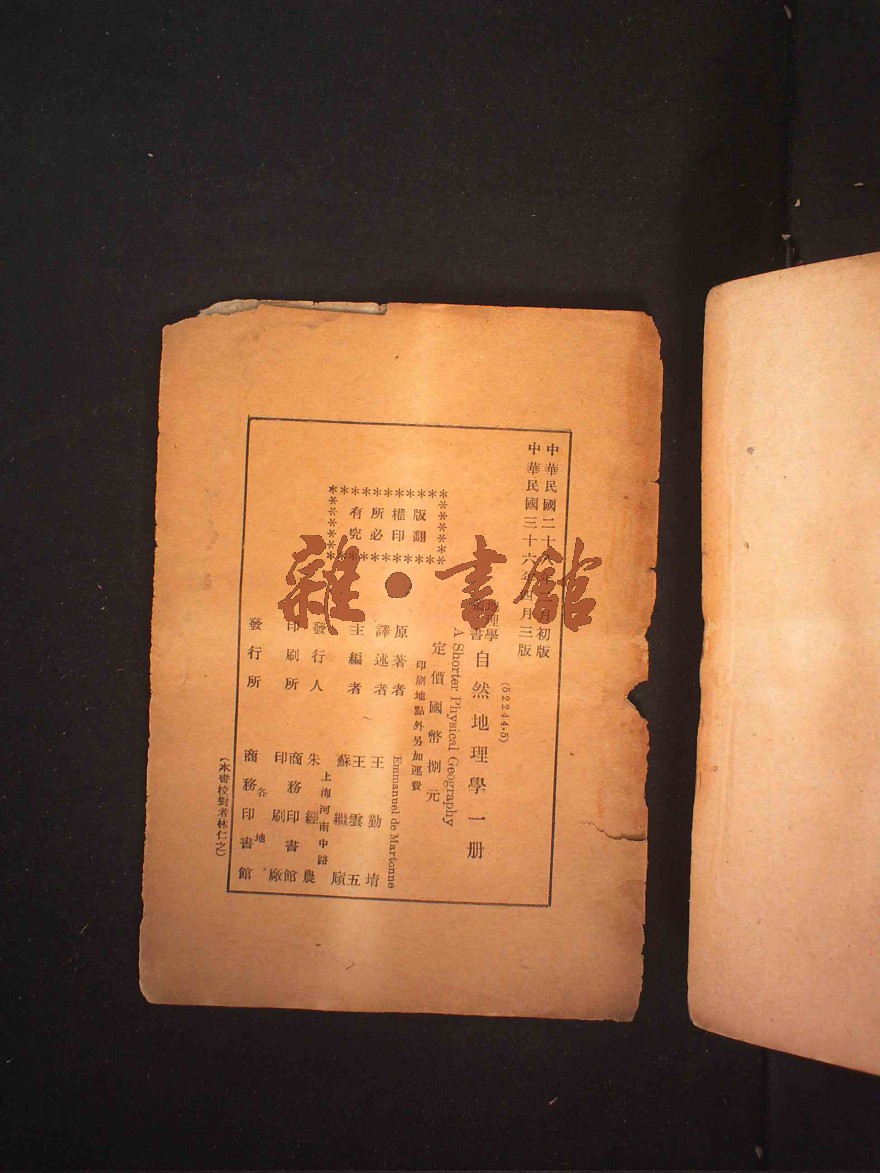 中華民國二十 月初版
中華民國三十六年四月三版
(52244·5)
地理學 書 自然地理學一册
A Shorter Physical Geography
定價國幣捌元
印刷地點外另加運費
版權所有
翻印必究
原著者 Emmanuel de Martonne
譯述者 王勤堉
主編者 王雲五
蘇繼廎
發行人 朱經農
上海河南中路
印刷所 商務印書館
印刷廠
發行所 商務印書館
各地
(本書校對者林仁之)
雜·書館